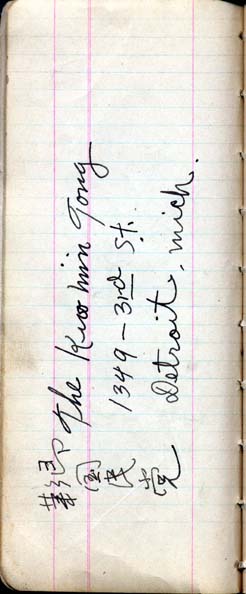 The Kwo min Tong
1349 – 3rd St.
Detroit, mich.
国民党